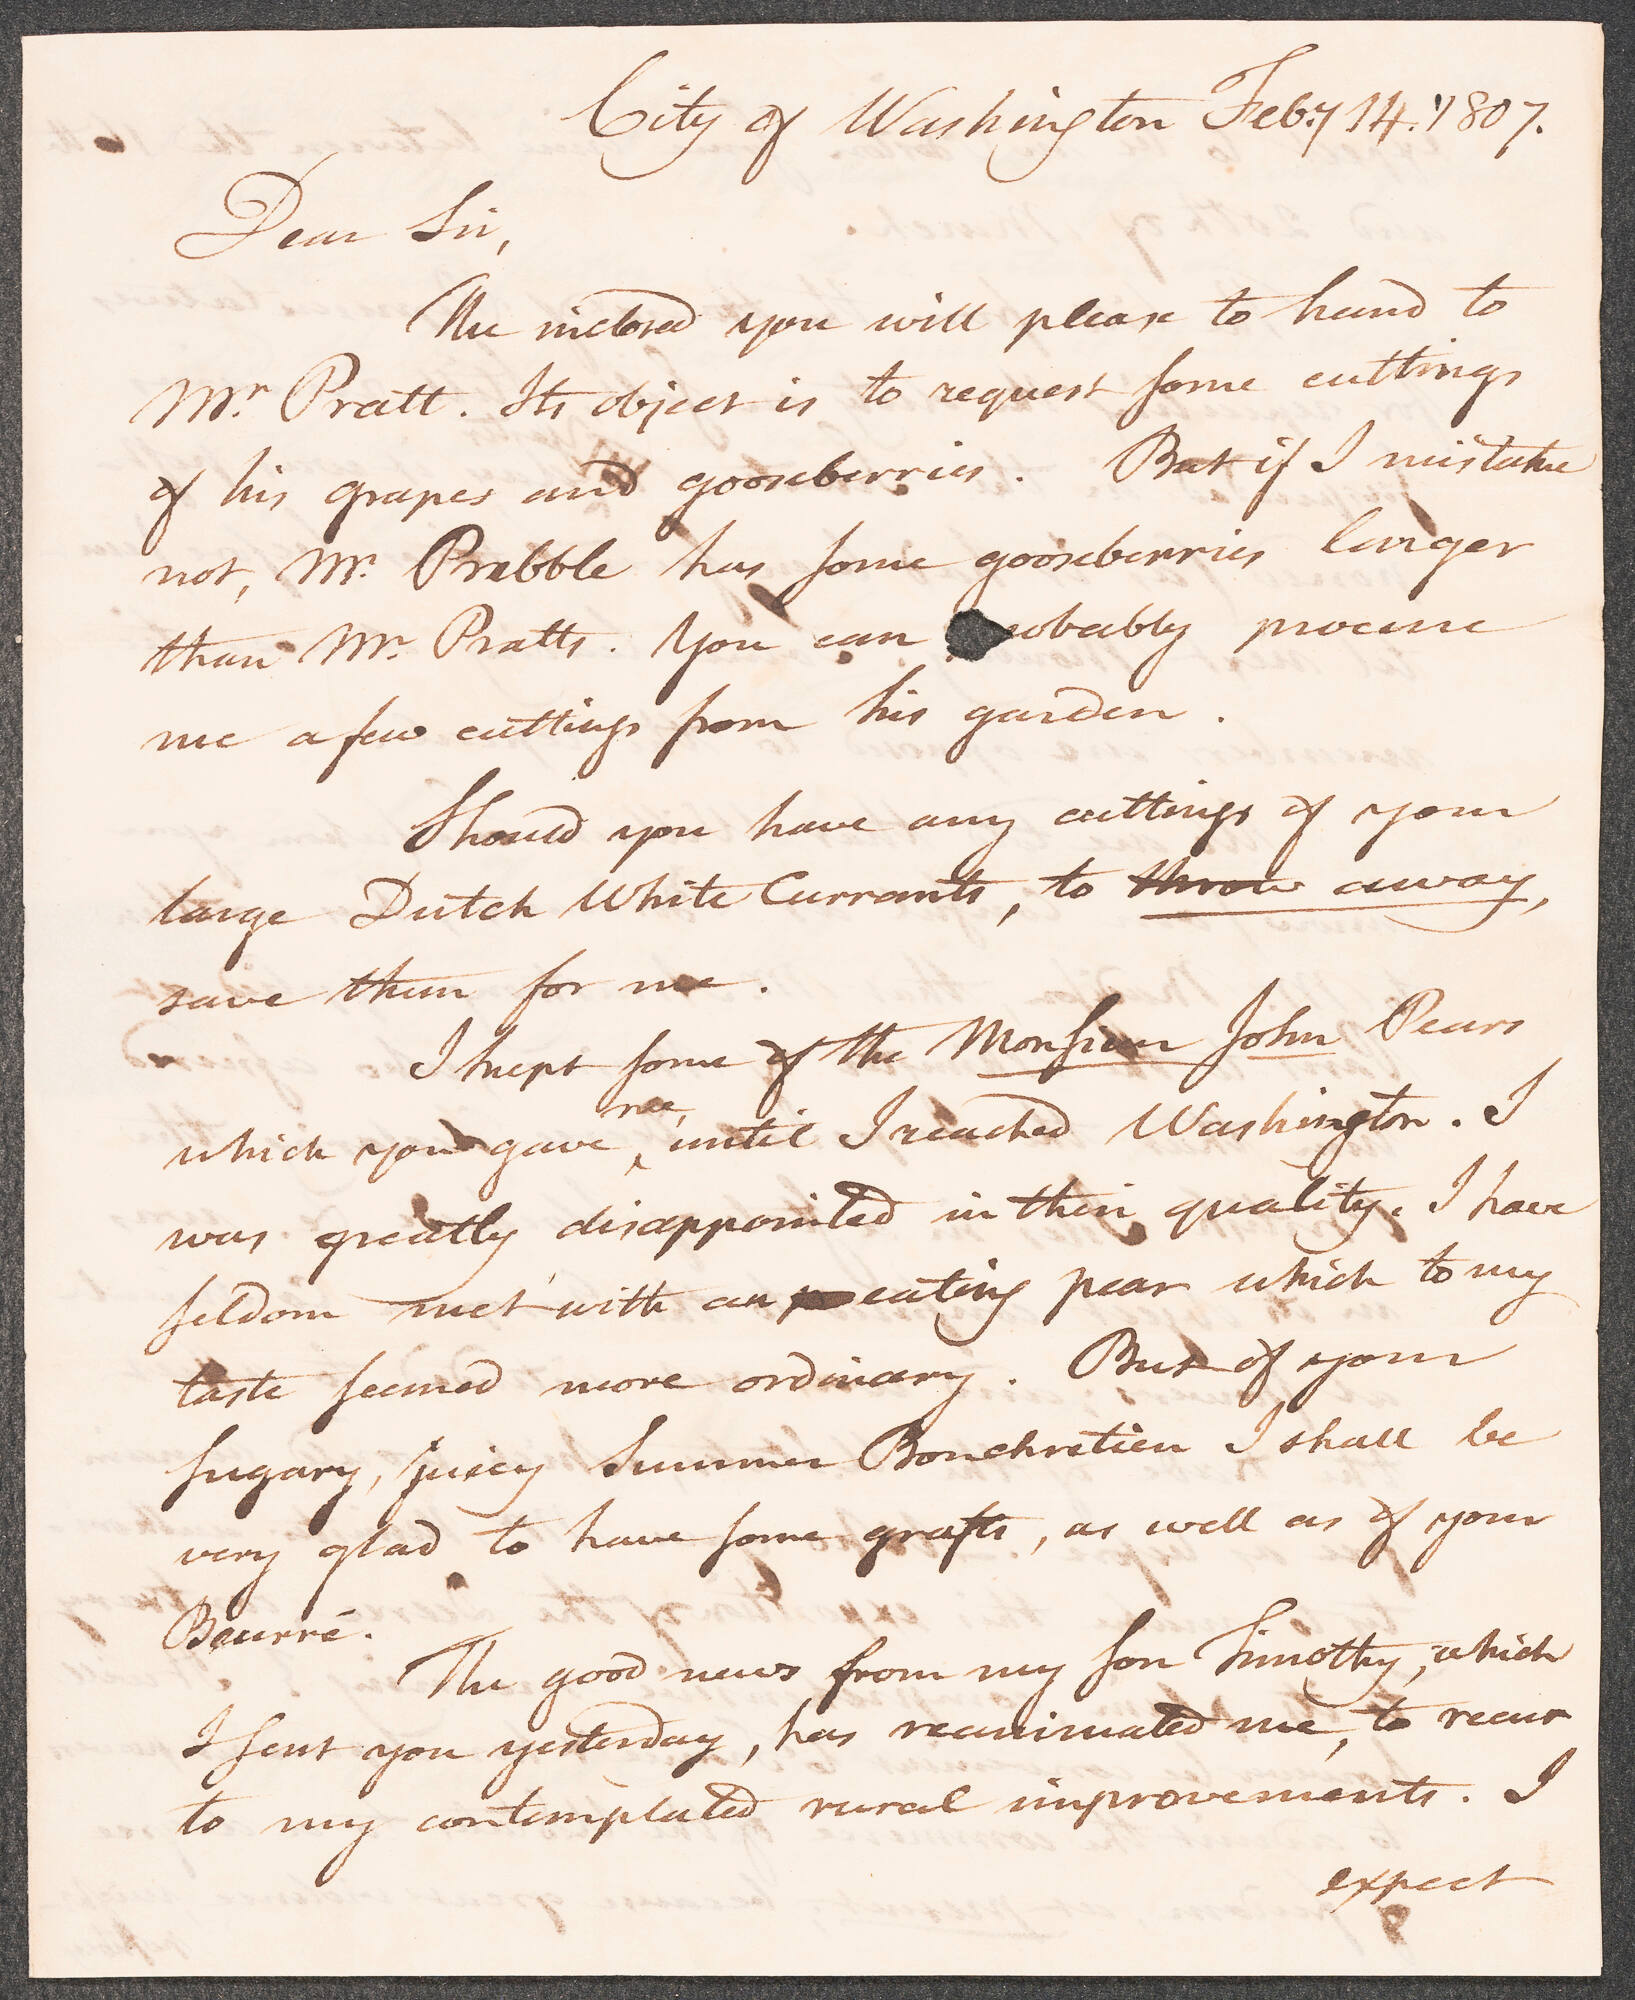 City of Washington Feby 14. 1807.
Dear Sir,
The inclosed you will please to hand to
Mr. Pratt. Its object is to request some cuttings
of his grapes and gooseberries. But if I mistake
not, Mr. Prebble has some gooseberries larger
than Mr. Pratts. You can probably procure
me a few cuttings from his garden.
Should you have any cuttings of your
large Dutch White Currants, to throw away,
save them for me.
I kept some of the Monsieur John Pears
which you gave me, until I reached Washington. I
was greatly disappointed in their quality. I have
seldom met with an eating pear which to my
taste seemed more ordinary. But of your
sugary, juicy Summer Bonchretien I shall be
very glad to have some grafts, as well as of your
Beurré.
The good news from my son Timothy, which
I sent you yesterday, has reanimated me, to recur
to my contemplated rural improvements. I
expect